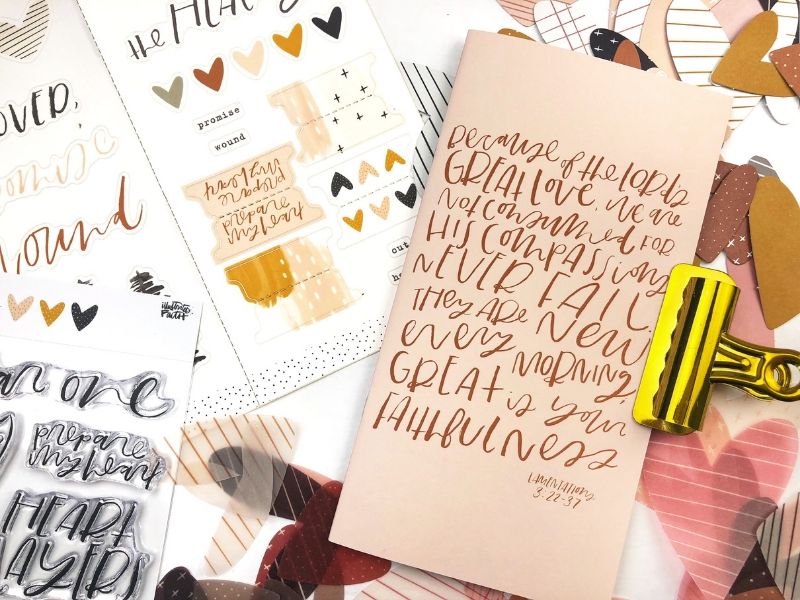 the HEAR
OVED,
omise
ound
promise
wound
prepare
my heart
prepare
my heart
out
illustrated
FAITH
an one
prepare
my heart
HEART
LAYERS
Because of the LORD'S
GREAT LOVE, WE ARE
NOT CONSUMED, FOR
HIS COMPASSIONS
NEVER FAIL.
THEY ARE NEW
every MORNING,
GREAT is your
FAITHFULNESS
LAMENTATIONS
3:22-37